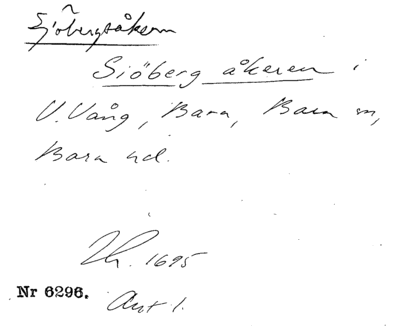 Sjöbergsåkern
Siöberg åkeren i
V. Vång, Bara, Bara sn,
Bara hd.
Lh. 1695
Nr 6296. Avt 1.